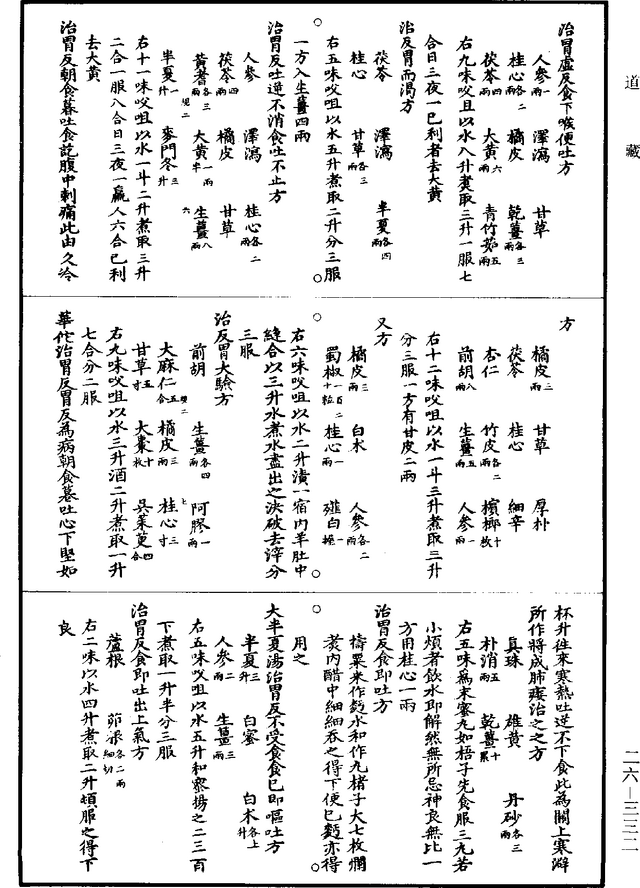 道藏
治胃虛反食下喉便吐方
人參一兩 澤瀉 甘草
桂心各二兩 橘皮 乾薑各三兩
茯苓四兩 大黃六兩 青竹茹五兩
右九味㕮咀以水八升煑取三升一服七
合日三夜一已利者去大黃
治反胃而渴方
茯苓 澤瀉 半夏各四兩
桂心 甘草各三兩
右五味㕮咀以水五升煮取二升分三服
一方入生薑四兩
治胃反吐逆不消食吐不止方
人參 澤瀉 桂心各二兩
茯苓四兩 橘皮 甘草
黃耆各三兩 大黃一兩半 生薑八兩
半夏一升 麥門冬三升
右十一味㕮咀以水一斗二升煮取三升
二合一服八合日三夜一羸人六合已利
去大黃
治胃反朝食暮吐食訖腹中刺痛此由久冷
方
橘皮三兩 甘草 厚朴
茯苓 桂心 細辛
杏仁 竹皮各二兩 檳榔十枚
前胡八兩 生薑五兩 人參一兩
右十二味㕮咀以水一斗三升煮取三升
分三服一方有甘皮二兩
又方
橘皮三兩 白朮 人參各二兩
蜀椒一百二十粒 桂心一兩 薤白一握
右六味㕮咀以水二升漬一宿內羊肚中
縫合以三升水煮水盡出之決破去滓分
三服
治反胃大驗方
前胡 生薑各四兩 阿膠一兩
大麻仁五合 橘皮三兩 桂心三寸
甘草五寸 大棗十枚 吳茱萸四合
右九味㕮咀以水三升酒二升煮取一升
七合分二服
華佗治胃反胃反為病朝食暮吐心下堅如
杯升往來寒熱吐逆不下食此為關上寒澼
所作將成肺痿治之之方
真珠 雄黃 丹砂各三兩
朴消五兩 乾薑十累
右五味為末蜜丸如梧子先食服三丸若
小煩者飲水即解然無所忌神良無比一
方用桂心一兩
治胃反食即吐方
擣粟米作麪水和作丸楮子大七枚爛
煑內醋中細細吞之得下便已麪亦得
用之
大半夏湯治胃反不受食食已即嘔吐方
半夏三升 白蜜 白朮各一升
人參二兩 生薑三兩
右五味㕮咀以水五升和蜜揚之二三百
下煮取一升半分三服
治胃反食即吐出上氣方
蘆根 茆根各二兩細切
右二味以水四升煮取二升頓服之得下
良
二六—三三二